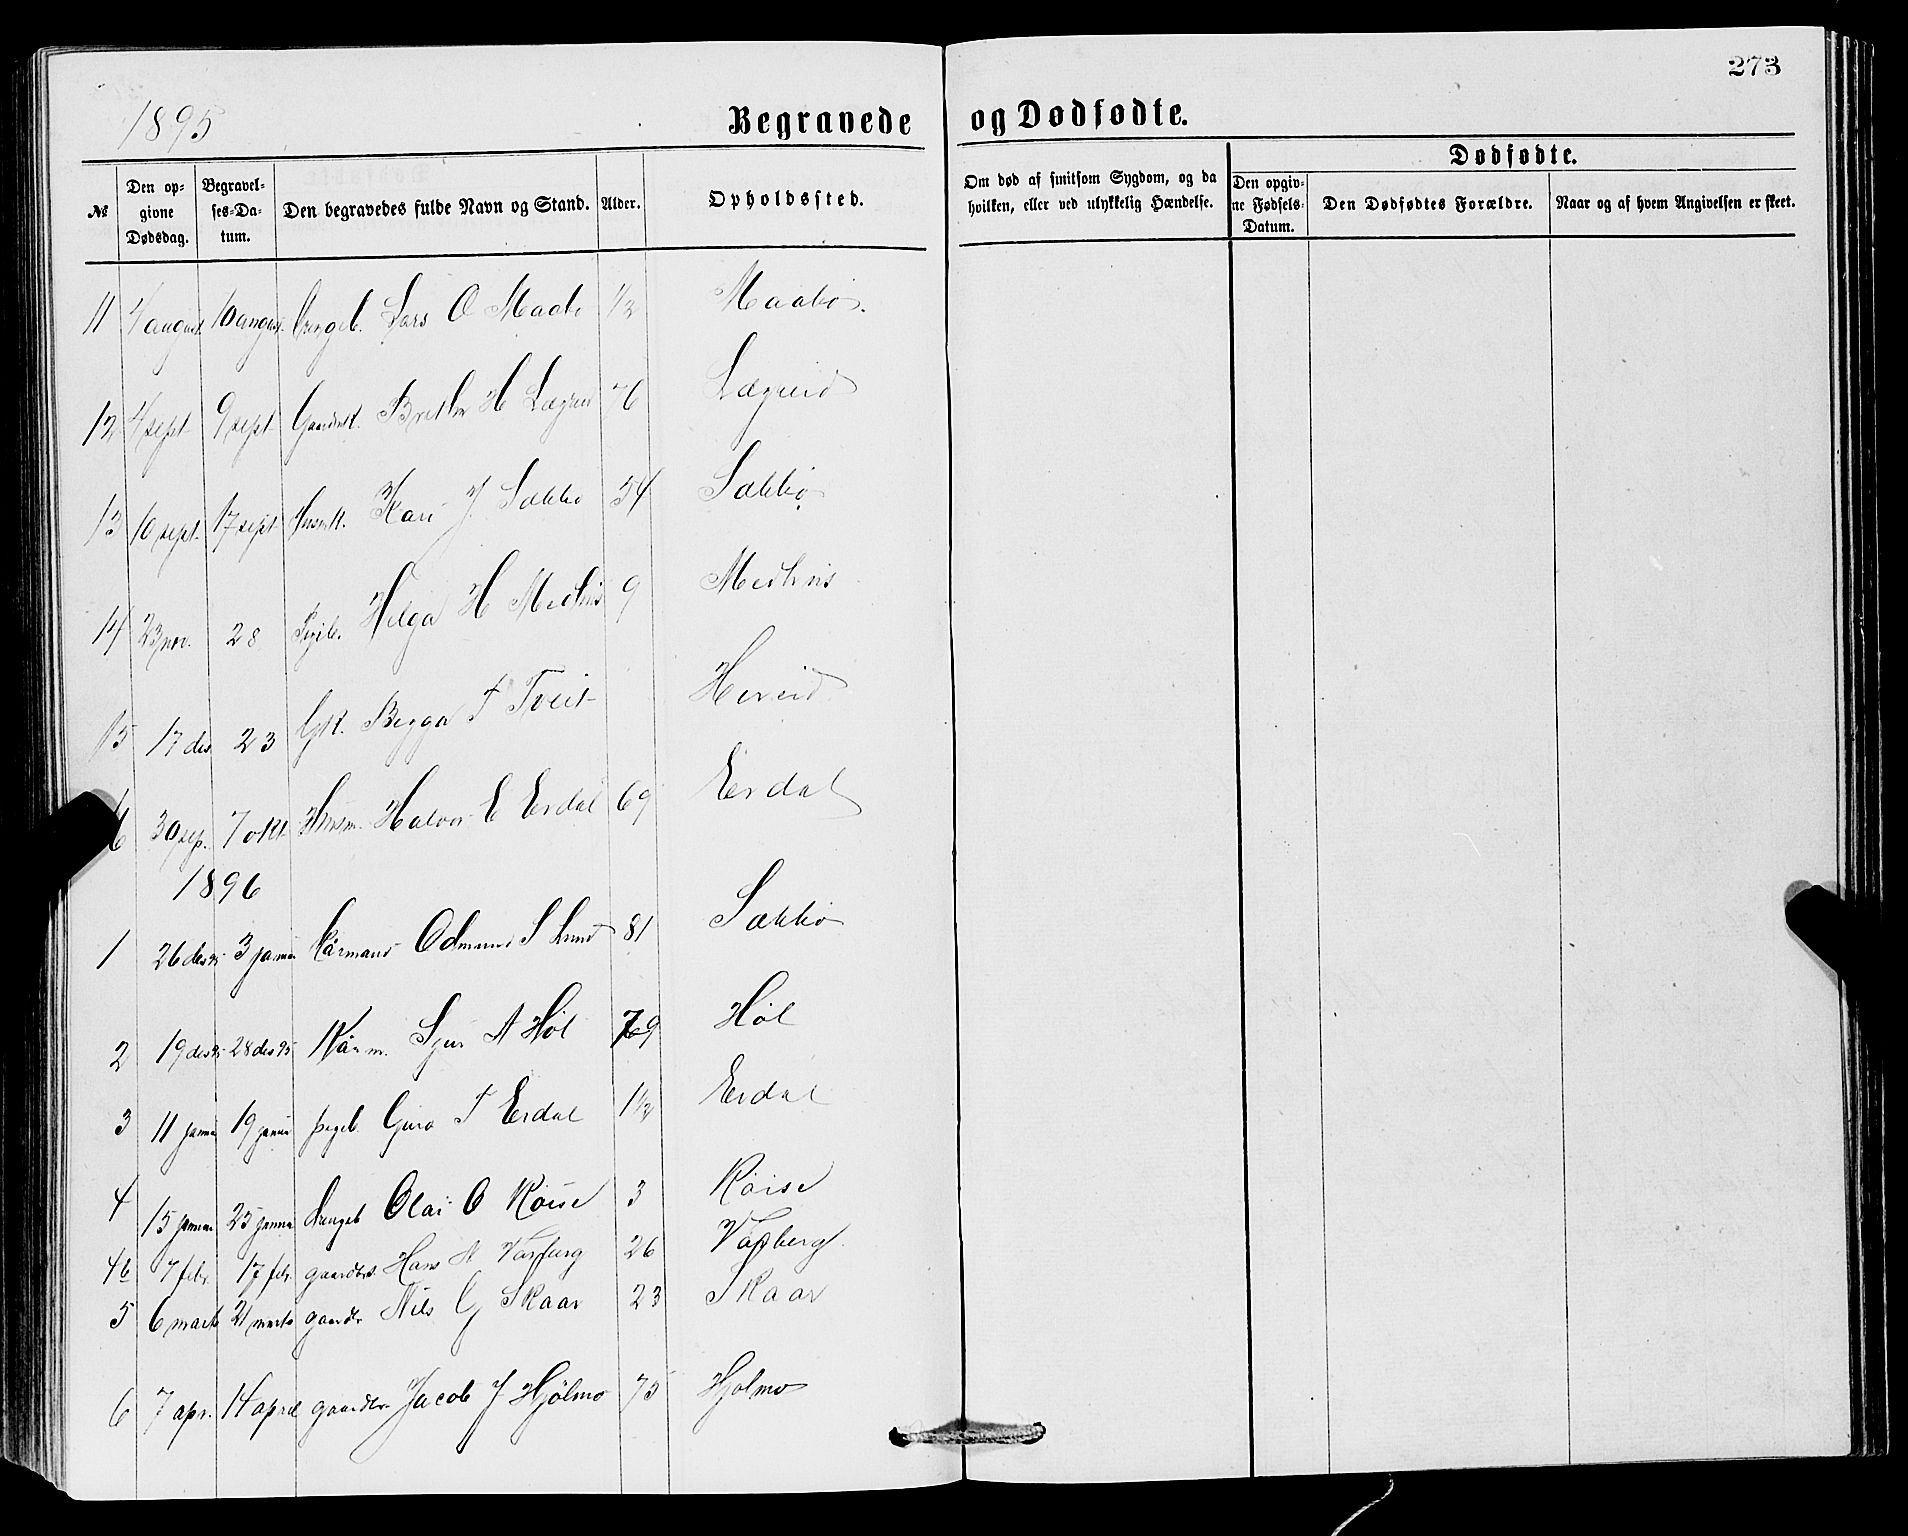 273
1895 Begravede og Dødfødte.
№ Den opgivne Dødsdag. Begravelses-Datum. Den begravedes fulde Navn og Stand. Alder. Opholdssted. Om død af smitsom Sygdom, og da hvilken, eller ved ulykkelig Hændelse. Dødfødte. Den opgivne Fødsels-Datum. Den Dødfødtes Forældre. Naar og af hvem Angivelsen er skeet.
11 4 august 10 august Drengeb. Lars O Maabø 1/2 Maabø.
12 4 sept 9 sept Gaardmk. H Lægrei 76 Lægreid
13 10 sept. 17 sept Husmk. Kari J. Sækkø 54 Sækkø
14 23 nov. 28 Pigeb. Helga H Medhus 9 Medhus
15 17 des 23 Gk. Begga T Tveit Hereid
16 30 sep. 7 okt Husm. Halvor E Erdal 69 Erdal
1896
1 26 des 95 3 januar Kårmand Odmund S Lund 81 Sækkø
2 19 des 95 28 des 95 Kårm. Sjur A Høl 79 Høl
3 11 januar 19 januar pigeb. Guro T Erdal 1 1/2 Erdal
4 15 januar 25 januar drengeb Olai O Røise 3 Røise
4b 7 febr. 17 febr. gaardbr. Hans A Varberg 26 Varberg
5 6 marts 21 marts gaardbr Nils G Skaar 23 Skaar
6 7 apr. 14 april gaardbr. Jacob J Hjølmo 75 Hjølmo